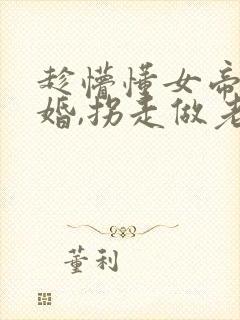 趁懵懂女帝
婚,拐走做老
董利